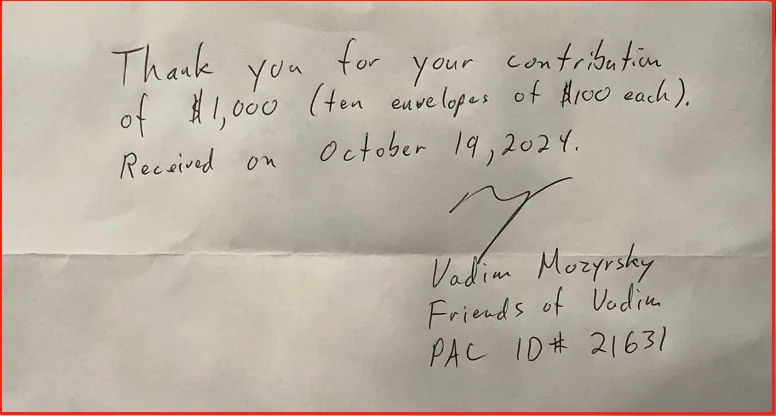 Thank you for your contribution
of $1,000 (ten envelopes of $100 each).
Received on October 19, 2024.
Vadim Mozyrsky
Friends of Vadim
PAC ID# 21631